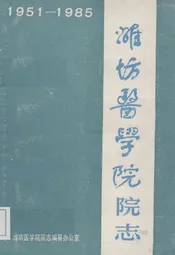 1951—1985
潍坊醫学院院志
潍坊医学院院志编纂办公室